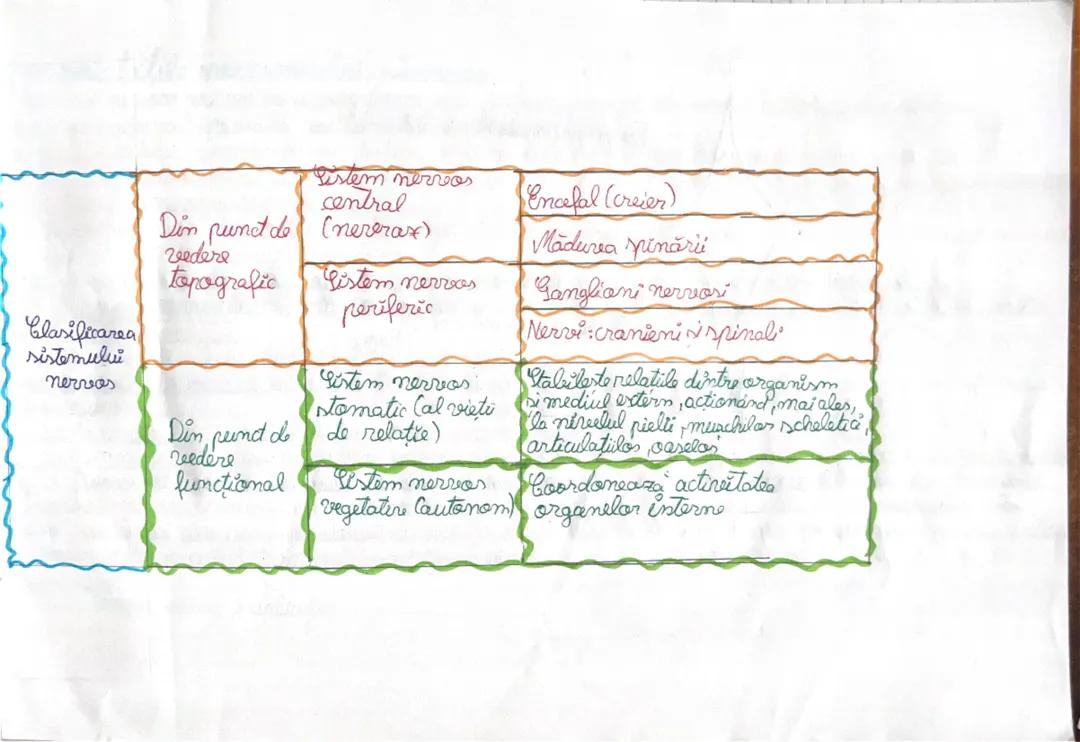 Clasificarea
sistemului
nervos
Din punct de
vedere
topografic
Sistem nervos
central
(nevrax)
Encefal (creier)
Măduva spinării
Sistem nervos
periferic
Ganglioni nervosi
Nervi: cranieni și spinali
Din punct de
vedere
funcțional
Sistem nervos
stomatic (al vieți
de relație)
Stabilește relațile dintre organism
și mediul extern, acționând, mai ales,
la nivelul pielii, muschilor scheletici,
articulațiilor, oaselor
Sistem nervos
vegetativ (autonom)
Coordonează activitatea
organelor interne